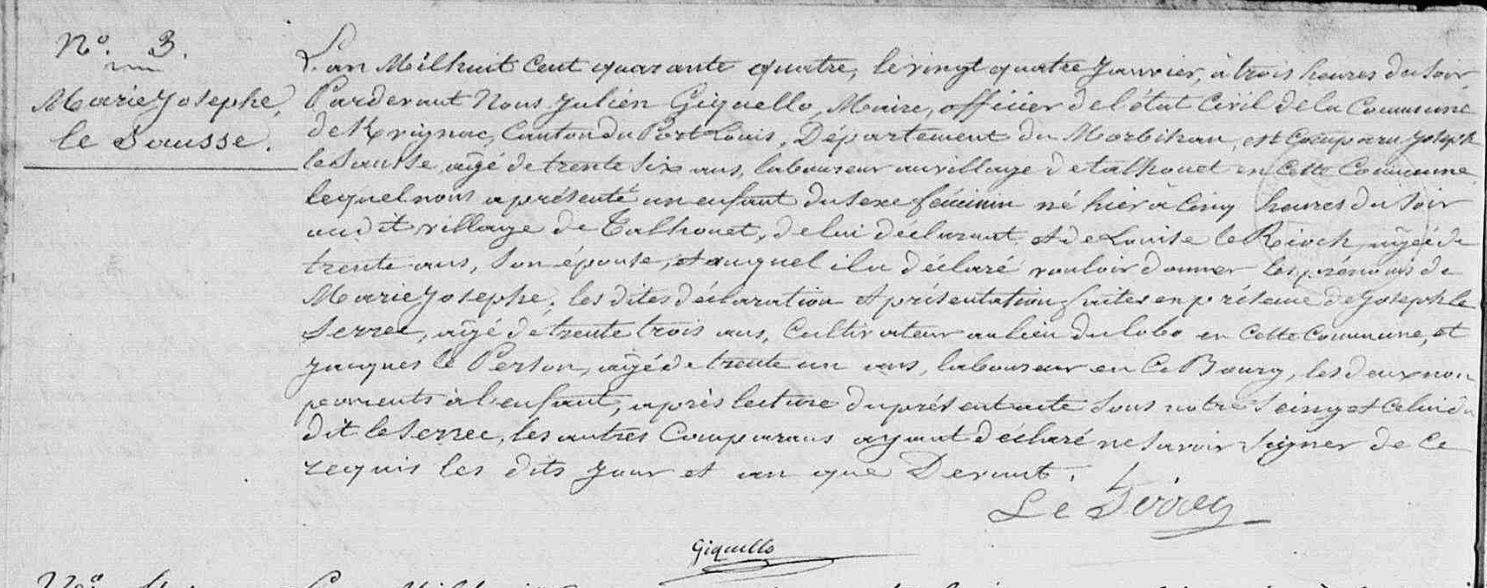 N.° 3.
Marie Josephe,
le Sausse.
L'an Mil huit Cent quarante quatre, le vingt quatre Janvier, à trois heures du Soir
Pardevant Nous Julien Giquello, Maire, officier de l'état Civil de la Commune
de Krvignac, Canton du Port Louis, Département du Morbihan, est Comparu Joseph
le Sausse, agé de trente Six ans, laboureur au village de talhouet en Cette Commune
lequel nous a présenté un enfant du Sexe féminin né hier à Cinq heures du Soir
audit village de Talhouet, de lui déclarant et de Louise le Rioch, agée de
trente ans, Son épouse, et auquel il a déclaré vouloir donner les prénoms de
Marie Josephe, les dites déclaration et présentation faites en présence de Joseph le
Serrec, agé de trente trois ans, Cultivateur au lieu du lobo en Cette Commune, et
Jacques le Person, agé de trente un ans, laboureur en Ce Bourg, les deux non
parents à l'enfant, après lecture du présent acte Sous notre Seing et Celui du
dit le Serrec, les autres Comparans ayant déclaré ne Savoir Signer de Ce
requis les dits Jour et an que Devant.
Le Serrec
Giquello